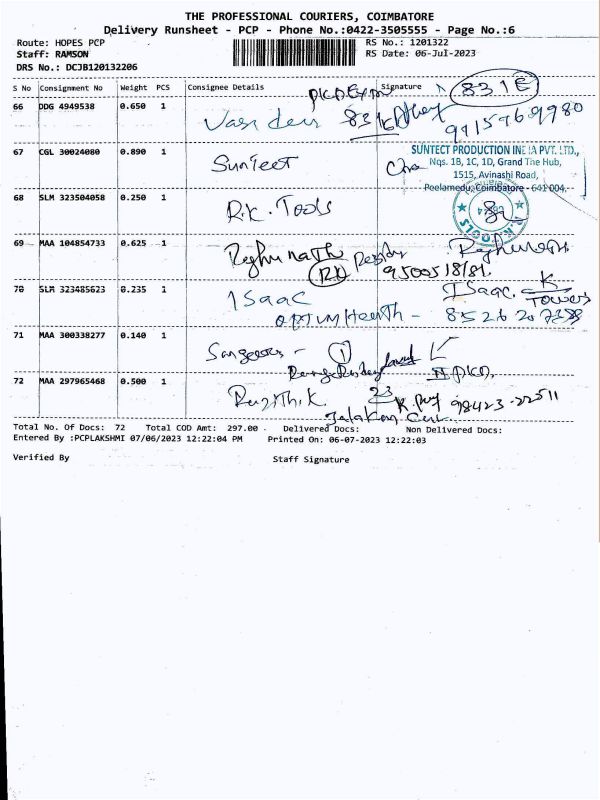 THE PROFESSIONAL COURIERS, COIMBATORE
Delivery Runsheet - PCP - Phone No.:0422-3505555 - Page No.:6
Route: HOPES PCP RS No.: 1201322
Staff: RAMSON RS Date: 06-Jul-2023
DRS No.: DCJB120132206
S No Consignment No Weight PCS Consignee Details Signature 831E
66 DDG 4949538 0.650 1
9915769980
67 CGL 30024080 0.890 1 Suntect SUNTECT PRODUCTION INDIA PVT. LTD.,
Nqs. 1B, 1C, 1D, Grand The Hub,
1515, Avinashi Road,
Peelamedu, Coimbatore - 641 004.
68 SLM 323504058 0.250 1 R.K. Tools
69 MAA 104854733 0.625 1 Raghunath Raghunath
RK
70 SLM 323485623 0.235 1 Isaac Isaac. K
Towers
71 MAA 300338277 0.140 1
72 MAA 297965468 0.500 1 98423-22511
Total No. Of Docs: 72 Total COD Amt: 297.00 Delivered Docs: Non Delivered Docs:
Entered By :PCPLAKSHMI 07/06/2023 12:22:04 PM Printed On: 06-07-2023 12:22:03
Verified By Staff Signature